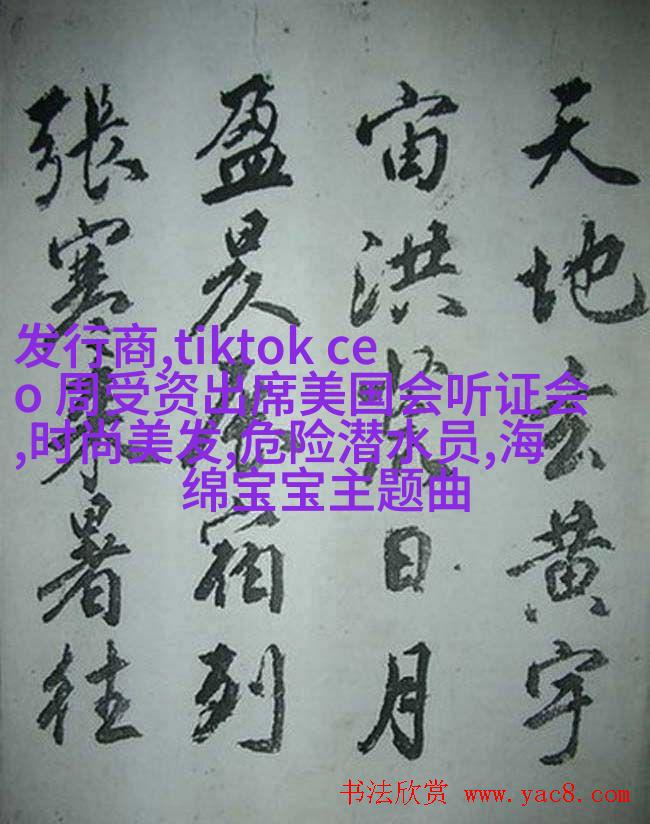 天地玄黄宇
宙洪日月
盈昃宿列
張寒暑往
发行商,tiktok ce
o 周受资出席美国会听证会
,时尚美发,危险潜水员,海
绵宝宝主题曲
书法欣赏 www.yac8.com